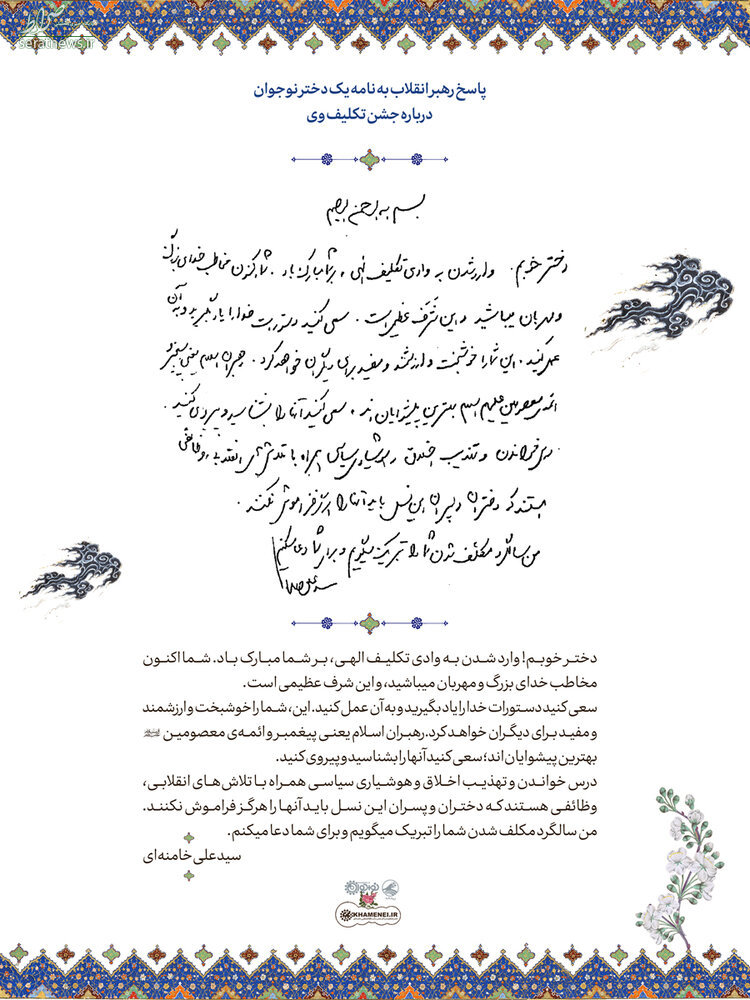 seratnews.ir
پاسخ رهبر انقلاب به نامه یک دختر نوجوان
درباره جشن تکلیف وی
دختر خوبم. وارد شدن به وادی تکلیف الهی، بر شما مبارک باد. شما اکنون مخاطب خدای بزرگ
و مهربان میباشید و این شرف عظیمی است. سعی کنید دستورات خدا را یاد بگیرید و به آن
عمل کنید. این شما را خوشبخت و ارزشمند و مفید برای دیگران خواهد کرد. رهبران اسلام یعنی پیغمبر و
ائمه‌ی معصومین علیهم السلام بهترین پیشوایان اند. سعی کنید آنها را بشناسید و پیروی کنید.
درس خواندن و تهذیب اخلاق و هوشیاری سیاسی همراه با تلاش های انقلابی، وظائفی
هستند که دختران و پسران این نسل باید آنها را هرگز فراموش نکنند.
من سالگرد مکلف شدن شما را تبریک میگویم و برای شما دعا میکنم
دختر خوبم! وارد شدن به وادی تکلیف الهی، بر شما مبارک باد. شما اکنون
مخاطب خدای بزرگ و مهربان میباشید، و این شرف عظیمی است.
سعی کنید دستورات خدا را یاد بگیرید و به آن عمل کنید. این، شما را خوشبخت و ارزشمند
و مفید برای دیگران خواهد کرد. رهبران اسلام یعنی پیغمبر و ائمه‌ی معصومین
بهترین پیشوایان اند؛ سعی کنید آنها را بشناسید و پیروی کنید.
درس خواندن و تهذیب اخلاق و هوشیاری سیاسی همراه با تلاش های انقلابی،
وظائفی هستند که دختران و پسران این نسل باید آنها را هرگز فراموش نکنند.
من سالگرد مکلف شدن شما را تبریک میگویم و برای شما دعا میکنم.
سیدعلی خامنه‌ای
KHAMENEI.IR